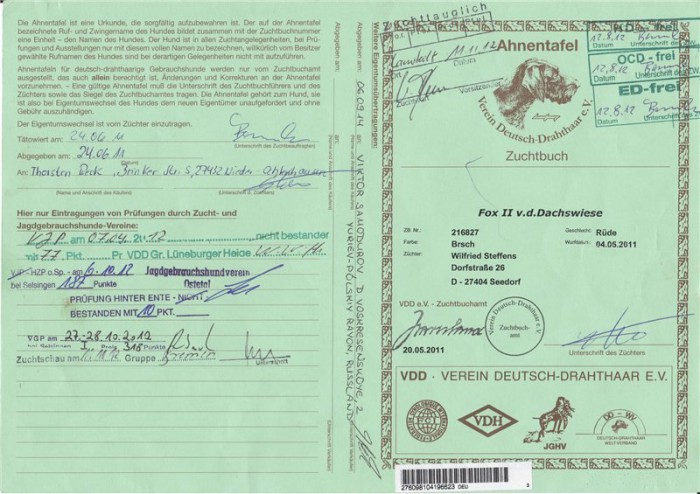 Die Ahnentafel ist eine Urkunde, die sorgfältig aufzubewahren ist. Der auf der Ahnentafel
bezeichnete Ruf- und Zwingername des Hundes bildet zusammen mit der Zuchtbuchnummer
eine Einheit – den Namen des Hundes. Der Hund ist in allen Zuchtangelegenheiten, bei Prü-
fungen und Ausstellungen nur mit diesem vollen Namen zu bezeichnen, willkürlich vom Besitzer
gewählte Rufnamen des Hundes sind bei derartigen Gelegenheiten nicht mit aufzuführen.
Ahnentafeln für deutsch-drahthaarige Gebrauchshunde werden nur vom Zuchtbuchamt
ausgestellt, das auch allein berechtigt ist, Änderungen und Korrekturen an der Ahnentafel
vorzunehmen. – Eine gültige Ahnentafel muß die Unterschrift des Zuchtbuchführers und des
Züchters sowie das Siegel des Zuchtbuchamtes tragen. Die Ahnentafel gehört zum Hund, sie
ist also bei Eigentumswechsel des Hundes dem neuen Eigentümer unaufgefordert und ohne
Gebühr auszuhändigen.
Der Eigentumswechsel ist vom Züchter einzutragen.
Tätowiert am: 24.06.11
(Unterschrift des Zuchtbeauftragten)
Abgegeben am: 24.06.11
(Datum) (Unterschrift d. Züchters)
An: Thorsten Beck, Brinker Str. 5, 27412
(Name und Anschrift des Käufers)
(Name und Anschrift des Käufers)
Hier nur Eintragungen von Prüfungen durch Zucht- und
Jagdgebrauchshunde-Vereine:
VJP am 07.04.2012 nicht bestanden
mit 77 Pkt. Pr. VDD Gr. Lüneburger Heide
HZP o.Sp. - am 6.10.12 Jagdgebrauchshundverein
bei Selsingen 187 Punkte Ostetal
PRÜFUNG HINTER ENTE - NICHT
BESTANDEN MIT 10 PKT.
VGP am 27.-28.10.2012
bei Selsingen I. Preis 318 Punkte
Zuchtschau am 11.11.12 Gruppe Bremen
Weitere Eigentumsübertragungen:
Abgegeben am: 06.09.14 an: VIKTOR SAMODUROV, D. VOSKRESENSKOYE, 2
YURIEV-POLSKIY RAYON, RUSSLAND
Abgegeben am: an:
Zuchttauglich
11.11.12
Datum
Ahnentafel
Verein Deutsch-Drahthaar e.V.
Zuchtbuch
12.8.12
Datum Unterschrift des
OCD - frei
12.8.12
Datum
ED-frei
12.8.12
Datum Unterschrift des
Fox II v.d.Dachswiese
ZB. Nr.: 216827 Geschlecht: Rüde
Farbe: Brsch Wurfdatum: 04.05.2011
Züchter: Wilfried Steffens
Dorfstraße 26
D - 27404 Seedorf
VDD e.V. - Zuchtbuchamt
Verein Deutsch-Drahthaar e.V.
Zuchtbuch-
amt
20.05.2011
Unterschrift des Züchters
VDD · VEREIN DEUTSCH-DRAHTHAAR E.V.
VDH
JGHV
DD - WV
DEUTSCH-DRAHTHAAR
WELTVERBAND
276098104196623 DEU 3